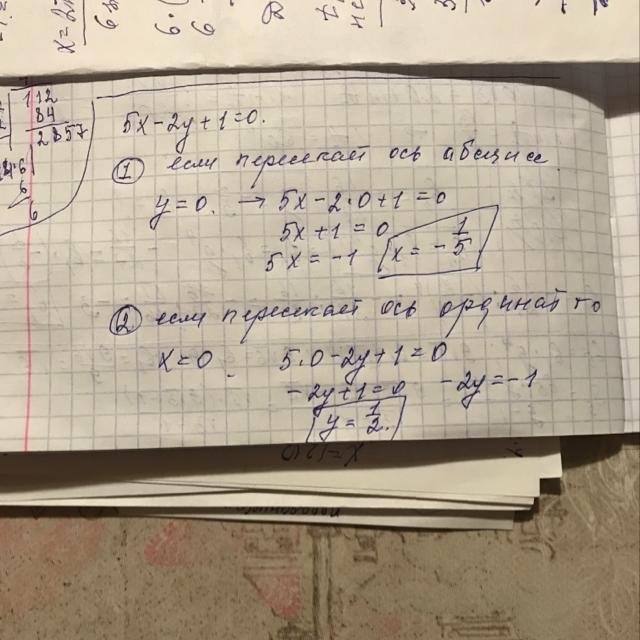 5x-2y+1=0.
① если пересекает ось абсцисс
y=0. → 5x-2·0+1=0
5x+1=0
5x=-1 x=-1/5
② если пересекает ось ординат то
x=0 5·0-2y+1=0
-2y+1=0 -2y=-1
y=1/2.
112
84
2857
6
6
x=2